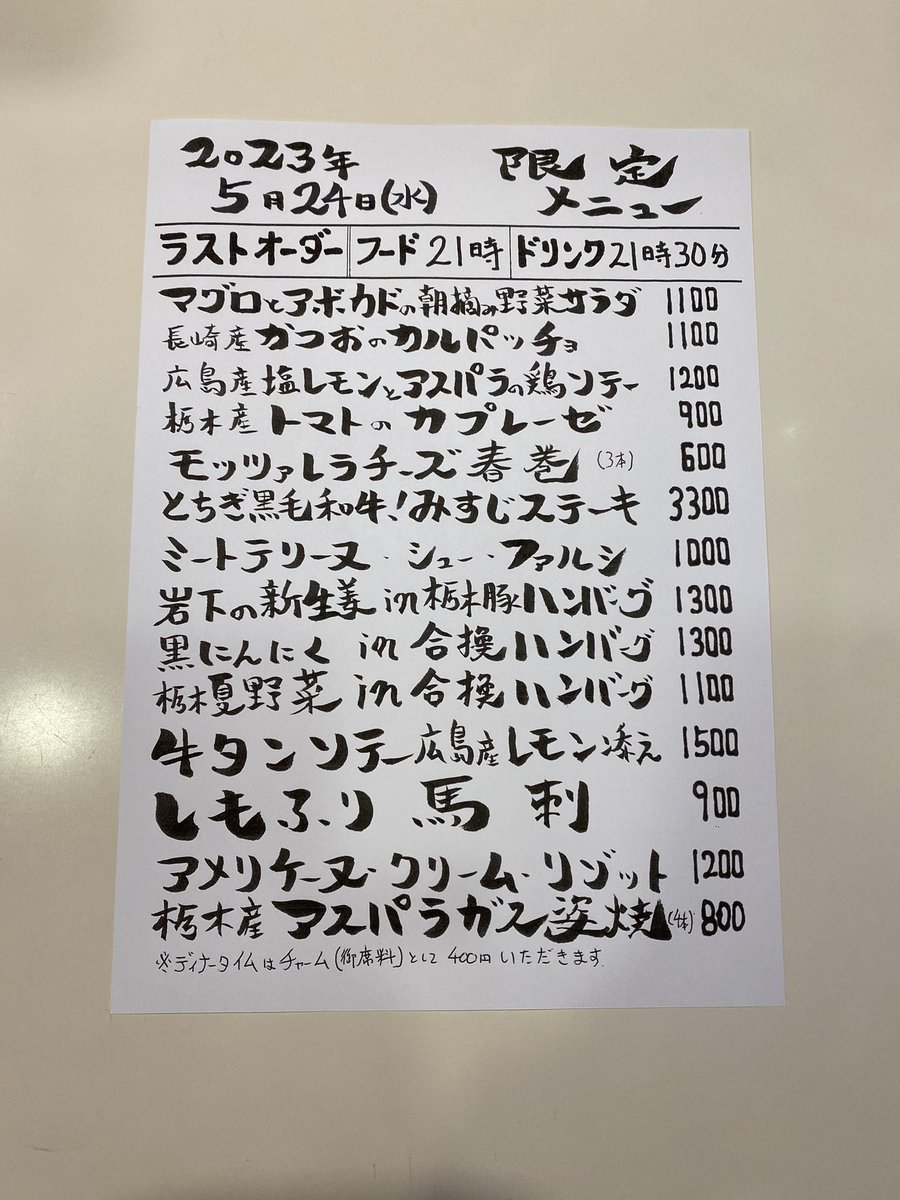 2023年 限定
5月24日(水) メニュー
ラストオーダー フード21時 ドリンク21時30分
マグロとアボカドの朝摘み野菜サラダ 1100
長崎産かつおのカルパッチョ 1100
広島産塩レモンとアスパラの鶏ソテー 1200
栃木産トマトのカプレーゼ 900
モッツァレラチーズ春巻(3本) 600
とちぎ黒毛和牛!みすじステーキ 3300
ミートテリーヌ・シュー・ファルシ 1000
岩下の新生姜in栃木豚ハンバーグ 1300
黒にんにくin合挽ハンバーグ 1300
栃木夏野菜in合挽ハンバーグ 1100
牛タンソテー広島産レモン添え 1500
しもふり馬刺 900
アメリケーヌ・クリーム・リゾット 1200
栃木産アスパラガス姿焼(4本) 800
※ディナータイムはチャーム(御席料)として400円いただきます.